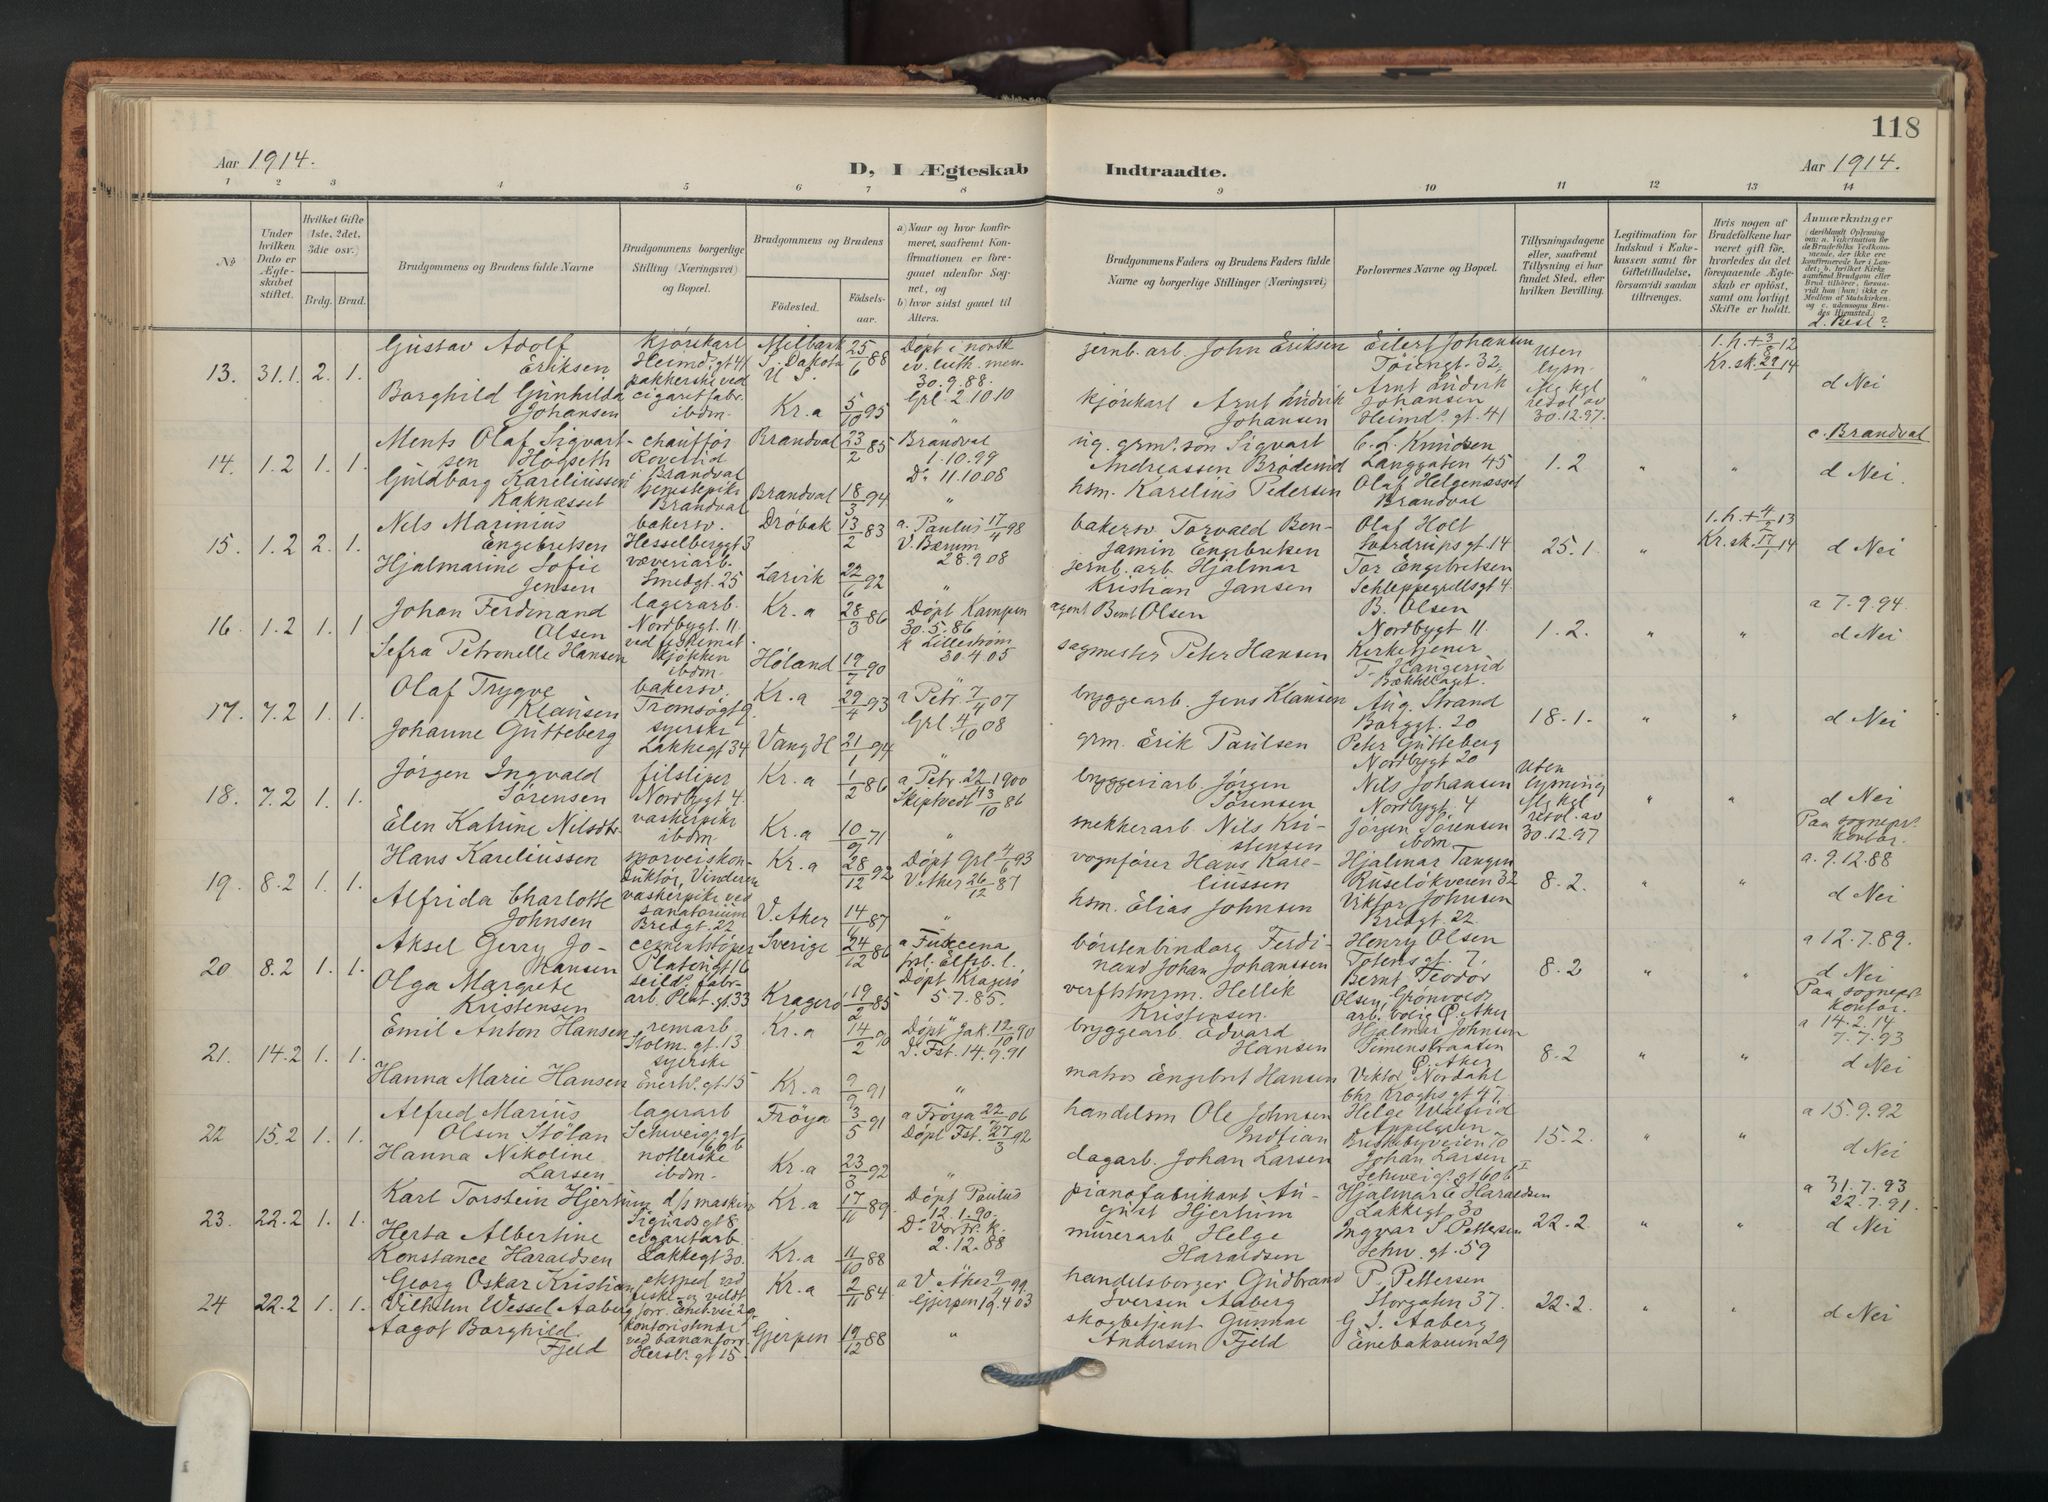 118
Aar 1914.
D, I Ægteskab Indtraadte.
Aar 1914.
1 2 3 4 5 6 7 8 9 10 11 12 13 14
No
Under hvilken Dato er Ægteskabet stiftet.
Hvilket Gifte (1ste, 2det, 3die osv.)
Brdg. Brud.
Brudgommens og Brudens fulde Navne
Brudgommens borgerlige Stilling (Næringsvei) og Bopæl.
Brudgommens og Brudens
Fødested.
Fødselsaar.
a) Naar og hvor konfirmeret, saafremt Konfirmationen er foregaaet udenfor Sognet, og
b) hvor sidst gaaet til Alters.
Brudgommens Faders og Brudens Faders fulde Navne og borgerlige Stillinger (Næringsvei)
Forlovernes Navne og Bopæl.
Tillysningsdagene eller, saafremt Tillysning ei har fundet Sted, efter hvilken Bevilling.
Legitimation for Indskud i Enkekassen samt for Giftetilladelse, forsaavidt saadan tiltrænges.
Hvis nogen af Brudefolkene har været gift før, hvorledes da det foregaaende Ægteskab er opløst, samt om lovligt Skifte er holdt.
Anmærkninger (deriblandt Oplysning om: a. Vakcination for de Brudefolks Vedkommende, der ikke ere konfirmerede her i Landet; b. hvilket Kirkesamfund Brudgom eller Brud tilhører, forsaavidt han (hun) ikke er Medlem af Statskirken og c. udensogns Brudes Hjemsted.
d. Besl?
13. 31.1. 2. 1.
Gustav Adolf Eriksen
kjørekarl Heimd. gt 41
Milbank S. Dakota U S.
25/6 88
Døpt i norsk ev. luth. men. 30.9.88.
jernb. arb. John Eriksen
Eilert Johansen Tøiengt. 32,
Uten lysn. Alg kgl resol av 30.12.97.
1. h. + 3/9 12 Kr. sk. 29/1 14
d Nei
Borghild Gunhilda Johansen
pakkerske ved cigaretfabr. ibdm.
Kr.a
5/10 95
Grl. 2.10.10
kjørekarl Arnt Ludvik Johansen
Arnt Ludvik Johansen Heimds gt. 41
14. 1.2 1. 1.
Ments Olaf Sigvartsen Høgseth
chauffør Roverud i Brandval
Brandval
23/2 85
Brandval 1.10.99
ug. grms. søn Sigvart Andreassen Brøderud
C. J. Knudsen Langgaten 45
1.2 " "
c. Brandval
d Nei.
Guldborg Kareliussen Kaknæsset
tjenestepike Brandval
Brandval
18/3 94
Do. 11.10.08
hsm. Karelius Pedersen
Olaf Helgenæsset Brandval
15. 1.2 2. 1.
Nils Marinius Engebriksen
bakersv. Hesselberggt 3
Drøbak
13/2 83
a. Paulus 17/4 98
bakersv Torvald Benjamin Engebriksen
Olaf Holt Sverdrups gt. 14
25.1. "
1. h. + 4/2 13 Kr. sk. 17/1 14
d Nei
Hjalmarine Sofie Jensen
væveriarb. Smedgt. 25
Larvik
22/6 92
V. Bærum 28.9.08
jernb. arb. Hjalmar Kristian Jansen
Tor Engebriksen Schleppegrellsgt 4.
16. 1.2 1. 1
Johan Ferdinand Olsen
lagerarb. Nordbygt. 11.
Kr. a
28/3 86
Døpt Kampen 30.5.86
agent Bernt Olsen
B. Olsen Nordbygt 11.
1.2. " "
a 7.9.94.
d Nei
Sefra Petronelle Hansen
kjøkken ibdm
Høland
19/7 90
k Lillestrøm 30.4.05
sagmester Peter Hansen
Kirketjener T. Haugerud Bækkelaget.
17. 7.2 1. 1.
Olaf Trygve Klausen
bakersv. Tromsøgt 9.
Kr. a
29/4 93
a Petr. 7/4 07
bryggearb. Jens Klausen
Aug. Strand Borggt. 20
18.1. " "
d Nei
Johanne Gutteberg
syerske Lakkegt 34
Vang H
21/1 94
Grl. 4/10 08
grm. Erik Paulsen
Peter Gutteberg Nordbygt 20
18. 7.2 1. 1.
Jørgen Ingvald Sørensen
filsliper Nordbygt 4.
Kr. a
1/2 86
a Petr. 22/4 1900
bryggeriarb. Jørgen Sørensen
Nils Johansen Nordbygt. 4
Uten lysning Alg kgl resol. av 30.12.97
" "
d Nei
Paa sognepr. kontor.
Elen Katrine Nilsdtr.
vaskerpike ibdm
Kr. a
10/9 71
Skiptvedt 13/10 86
snekkerarb. Nils Kristensen
Jørgen Sørensen ibdm.
19. 8.2 1. 1.
Hans Kareliussen
sporveiskonduktør, Vinderen
Kr. a
28/12 92
Døpt Grl 4/6 93
vognfører Hans Kareliussen
Hjalmar Tangen Ruseløkveien 32
8.2. " "
a. 9.12.88
d Nei
Alfrida Charlotte Johnsen
vaskerpike ved sanatorium Bredgt. 22
V. Aker
14/11 87
V. Aker 26/12 87
hsm. Elias Johnsen
Viktor Johnsen Bredgt. 22.
20 8.2 1. 1.
Aksel Gerry Johansen
cementstøper Platousgt 16
Sverige
24/12 86
børstenbinderarb. Ferdinand Johan Johanssen
Henry Olsen Totens gt. 7.
8.2 " "
a 12.7.89.
d Nei
Paa sognepr. kontor.
Olga Margrete Kristensen
seild. fabr. arb. Plat. gt. 33
Kragerø
19/2 85
Døpt Kragerø 5.7.85.
verftstmrm. Hellik Kristensen.
Bernt Teodor Olsen, Grønvolds arb. bolig Ø. Aker
21. 14.2 1. 1.
Emil Anton Hansen
remarb Stolm. gt. 13
Kr. a
14/2 90
Døpt Jak. 12/10 90
bryggearb. Edvard Hansen
Hjalmar Johnsen Simenstraaten Ø. Aker
8.2 " "
a 14.2.14 7.7.93
d Nei
Hanna Marie Hansen
syerske Enerh. gt. 15
Kr. a
9/9 91
D. Fst. 14.9.91
matros Engebret Hansen
Viktor Nordahl Chr. Kroghs gt 47.
22 15.2 1. 1.
Alfred Marius Olsen Stølan
lagerarb Schweigs gt 60 b
Frøya
3/5 91
a Frøya 22/7 06
handelsm Ole Johnsen Indtian
Helge Walfrid Appelgren Briskebyveien 70
15.2. " "
a 15.9.92
d Nei
Hanna Nikoline Larsen
ibdm.
Kr. a
23/3 92
Døpt Fst. 27/3 92
dagarb. Johan Larsen
Johan Larsen Schweigs. gt 60 b I
23. 22.2 1. 1.
Karl Torstein Hjertum
d/p maskin Sigurds gt 8
Kr. a
17/11 89
Døpt Paulus 12.1.90.
pianofabrikant August Hjertum
Hjalmar C Haraldsen Lakkegt. 30
22.2. " "
a 31.7.93 22.7.91.
d Nei
Herta Albertine Konstance Haraldsen
cigaretarb Lakkegt 30.
Kr. a
11/10 88
D. Vor Fr. k. 2.12.88
murerarb Helge Haraldsen
Ingvar S. Pettersen Schw. gt. 59
24 22.2 1. 1.
Georg Oskar Kristian Vilhelm Wessel Aaberg
eksped ved fiske og vildt forr. Eneb. vei 29
Kr. a
2/11 84
a V. Aker 9/4 99
handelsborger Gudbrand Iversen Aaberg
P. Pettersen Storgaten 37.
22.2. " "
d Nei
Aagot Borghild Fjeld
kontoristinde ved bananforr. Hersl. gt 15.
Gjerpen
19/12 88
Gjerpen 19.4.03
skogbetjent Gunnar Andersen Fjeld
G S. Aaberg Enebakveien 29